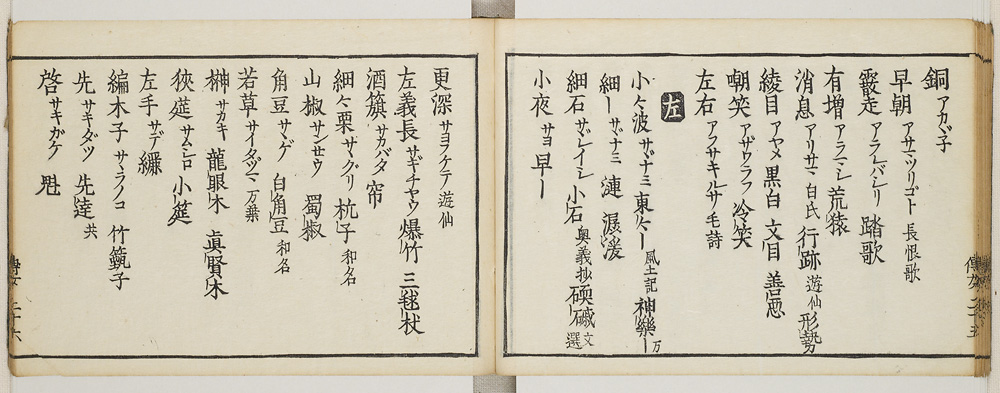 銅アカヾ子
早朝アサマツリゴト長恨歌
霰走アラレバシリ 踏歌
有増アラマシ荒猿
消息アリサマ白氏 行跡遊仙形勢
綾目アヤメ黒白 文目 善惡
嘲笑アザワラフ冷笑
左右アフサキルサ毛詩
左
小々波サヾナミ東々ー風土記神樂ー万
細ーサヾナミ 漣 濵湲
細石サヾレイシ小石奥義抄礝磩文選
小夜サヨ 早ー
更深サヨフケテ遊仙
左義長サギチヤウ爆竹 三毬杖
酒籏サカバタ 帘
細々栗サヽグリ杭子和名
山椒サンセウ 蜀椒
角豆サヽゲ 白角豆和名
若草サイタヅマ万葉
榊サカキ龍眼木 眞賢木
狹莚サムシロ小莚
左手サデ纚
編木子サラノコ 竹筅子
先サキダツ 先達共
啓サキガケ 魁